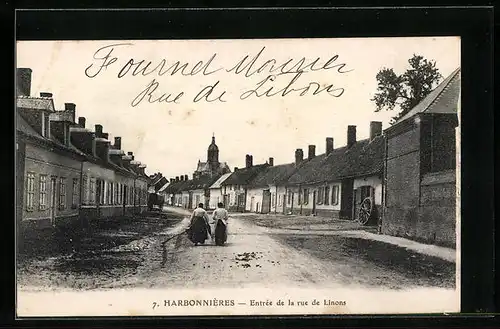 Fournel Maurice
Rue de Libons
7. HARBONNIÈRES — Entrée de la rue de Linons